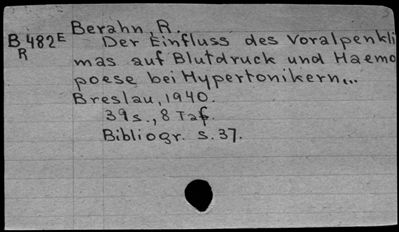 Berahn, R.
B 482 E
R
Der Einfluss des Voralpenkli
mas auf Blutdruck und Haemo
poese bei Hypertonikern,..
Breslau, 1940.
39 s., 8 Taf.
Bibliogr. s. 37.